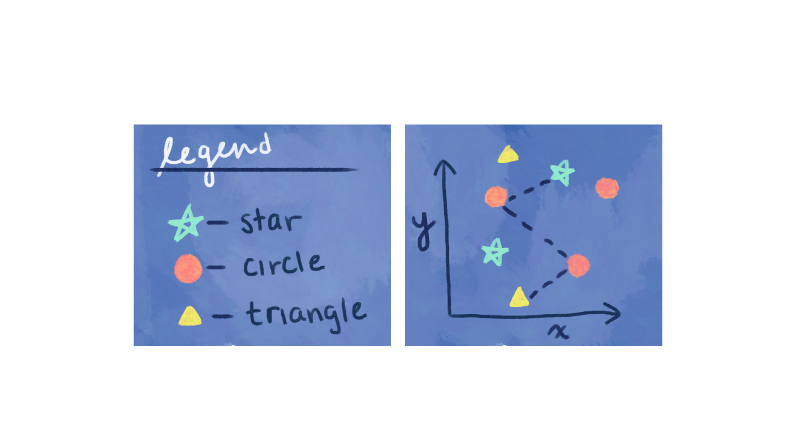 legend
— star
— circle
— triangle
y
x